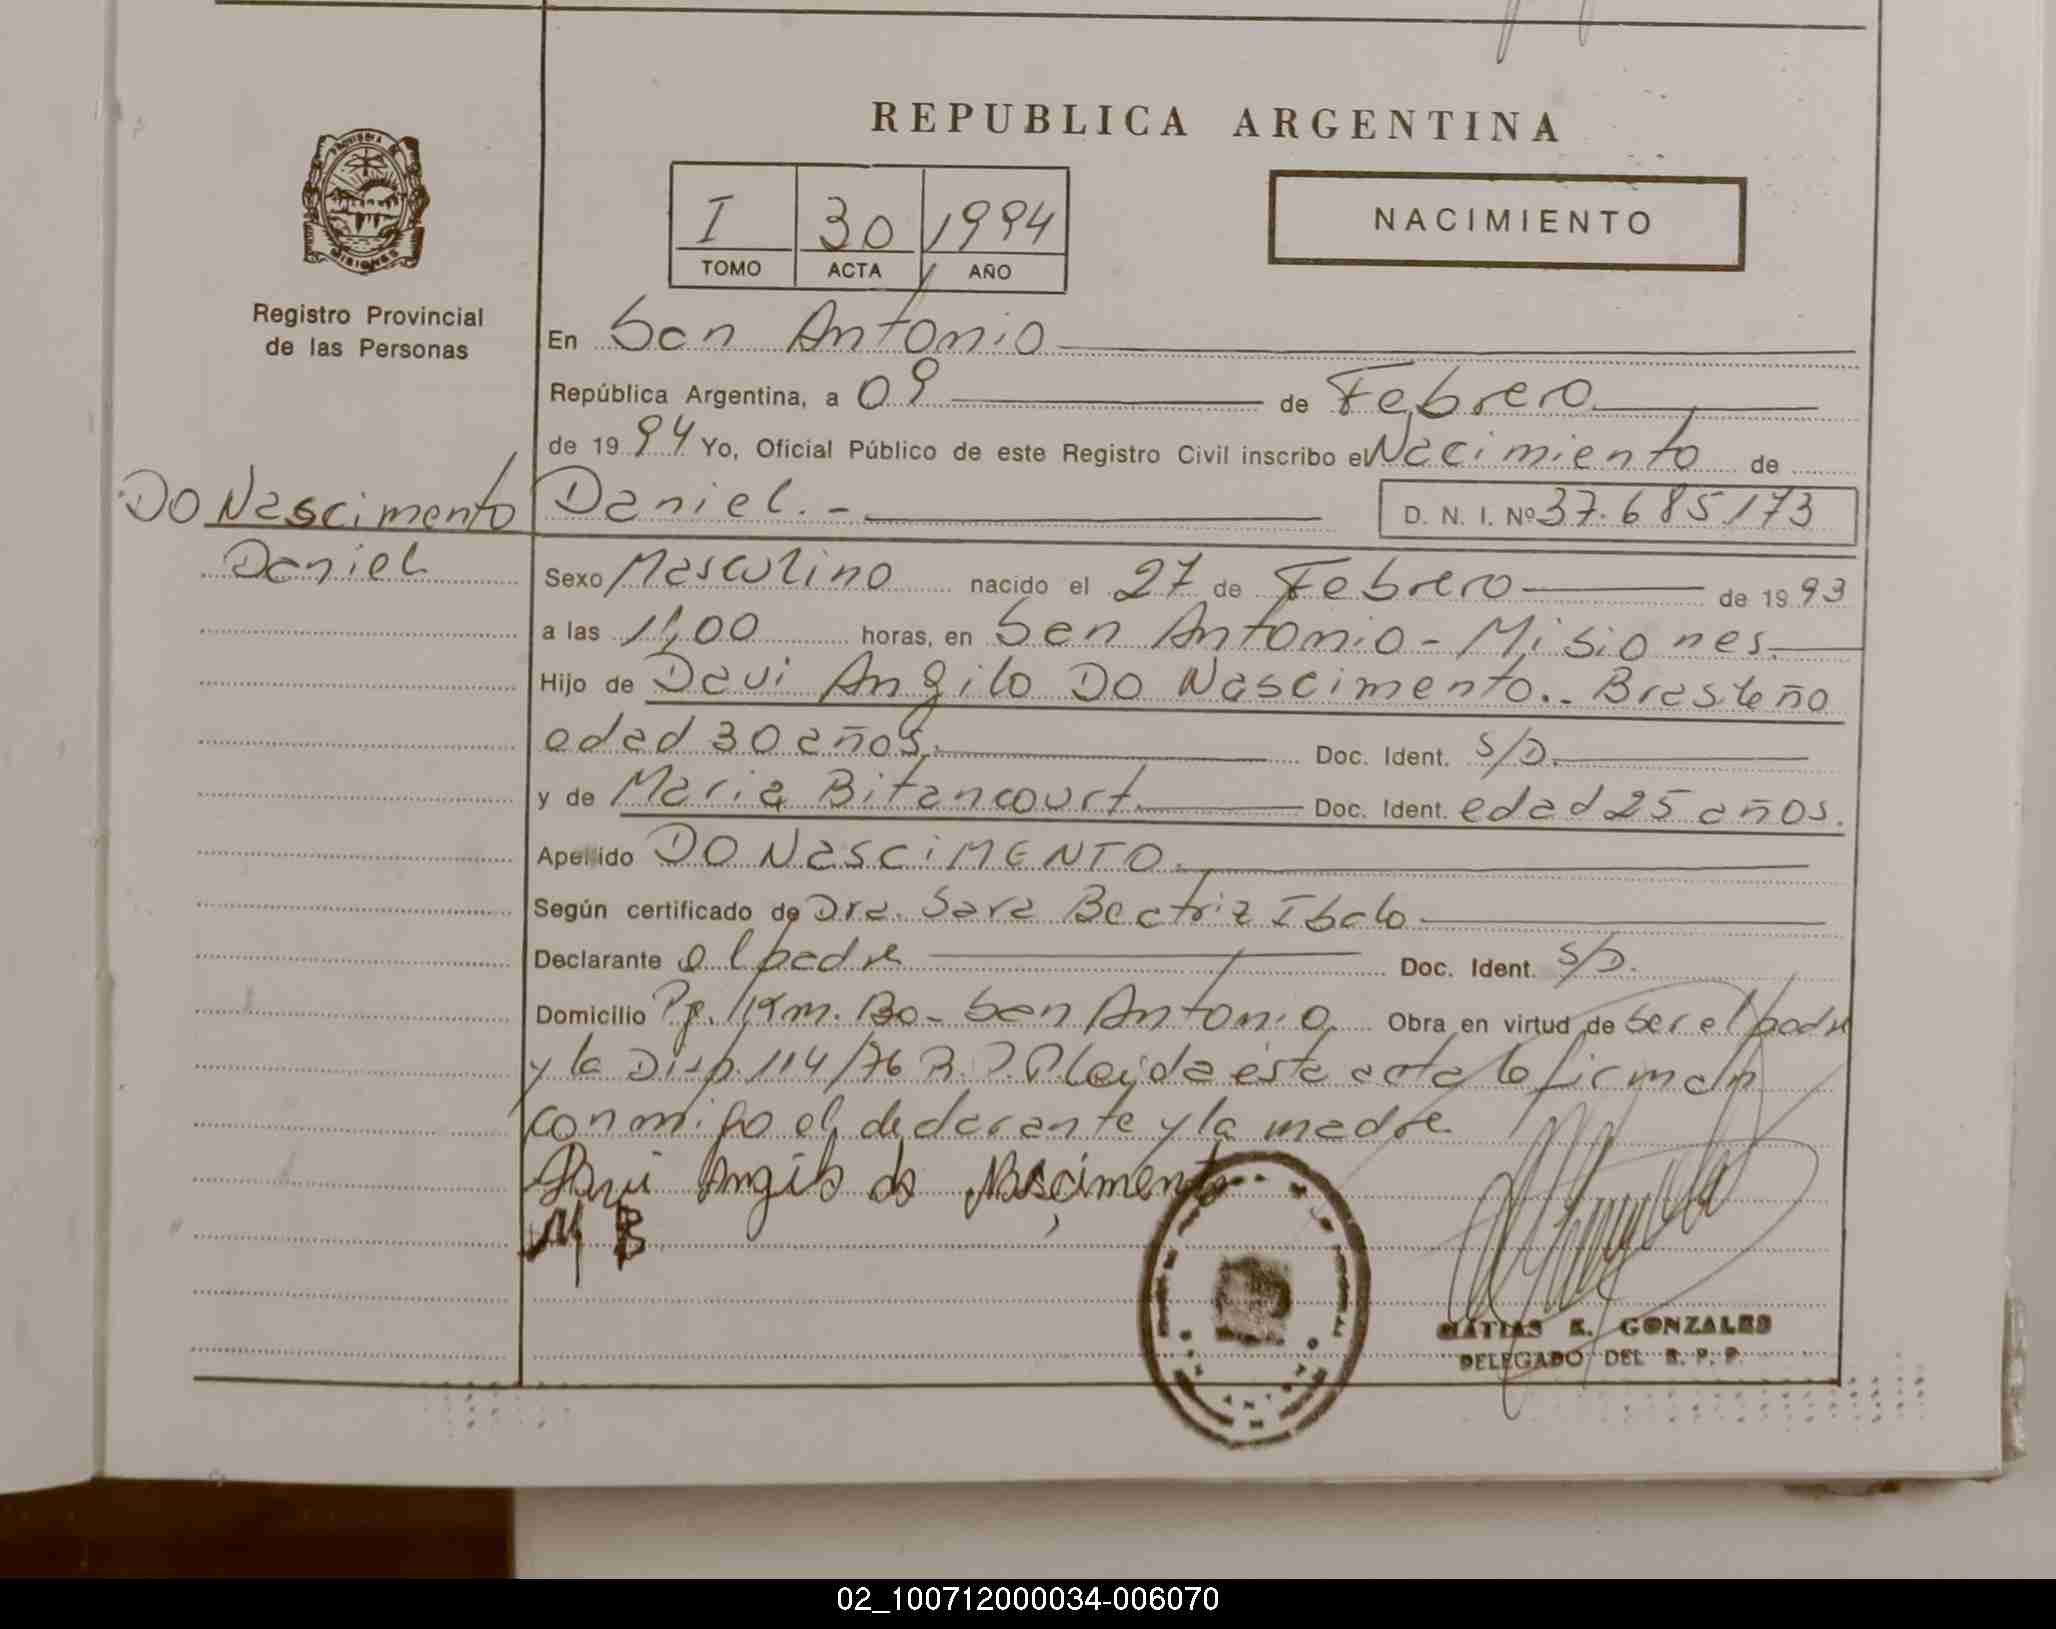 REPUBLICA ARGENTINA
I 30 1994
TOMO ACTA AÑO
NACIMIENTO
PROVINCIA DE MISIONES
Registro Provincial
de las Personas
En San Antonio
República Argentina, a 09 de Febrero
de 1994 Yo, Oficial Público de este Registro Civil inscribo el Nacimiento de
DO Nascimento
Daniel
Daniel.-
D. N. I. Nº 37.685.173
Sexo Masculino nacido el 27 de Febrero de 1993
a las 11,00 horas, en San Antonio - Misiones.
Hijo de Davi Angilo Do Nascimento.. Brasileño
edad 30 años. Doc. Ident. S/D.
y de Maria Bitancourt. Doc. Ident. edad 25 años.
Apellido DO NascimENTO.
Según certificado de Dra. Sara Beatriz Ibalo
Declarante el padre Doc. Ident. S/D.
Domicilio Pje. 1 Km. Bo- San Antonio. Obra en virtud de ser el padre
y la Disp. 114/76 R.P.P Leida ésta acta la firman
conmigo el declarante y la madre
Davi Angilo do Nascimento
M B
MATIAS E. GONZALES
DELEGADO DEL R. P. P.
02_100712000034-006070